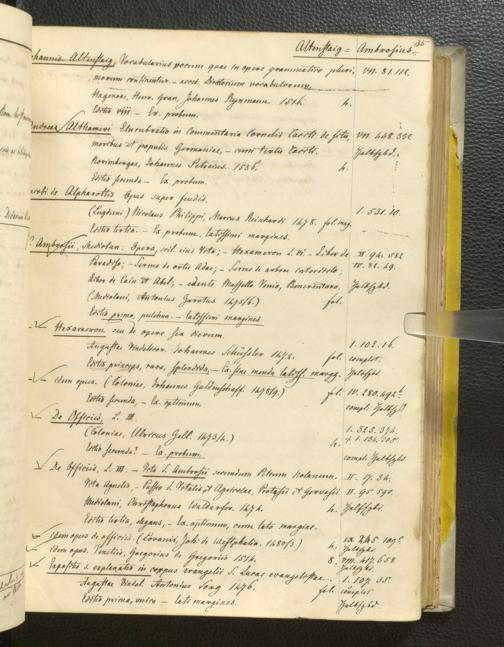 Altenstaig = Ambrosius. 35
Johannis Altenstaig Vocabularius vocum quae in opere grammatico pluri-
morum continentur. — acced. Directorium vocabulorum. VII. 81. 118.
Hagenoae, Henr. Gran, Johannes Rynmann 1516. 4.
Editio VIII. — Ex. probum.
Andreae Althameri Elucubratio in Commentaria Cornelii Taciti de situ, VII. 448. 332
moribus et populis Germaniae, — cum textu Taciti. Halbfzbd.
Norimbergae, Johannes Petreius. 1536. 4.
Editio secunda — Ex. probum.
Jacobi de Alpharottis Opus super feudis.
(Lugduni) Nicolaus Philippi, Marcus Reinhardi 1478. fol. mag. 1. 531. 10.
Editio tertia. — Ex. probum, latissimi margines.
S. Ambrosii, Mediolan. Opera, scil. eius Vita; — Hexameron L. VI. — Liber de II. 94. 582
Paradiso; — Sermo de ortu Adae; — Sermo de arbore interdicto; IV. 82. 49.
Liber de Cain et Abel, — edente Massello Venia, Beneventano. Halbfzbd.
(Mediolani, Antonius Zarotus 1475/6.) fol.
Editio prima, pulchra. — latissimi margines
Hexameron seu de opere sex dierum.
Augustae Vindelicor. Johannes Schüssler 1472. fol. 1. 102. 16.
Editio princeps, rara, splendida, — Ex. sine menda latiss. margg. complet. Halbfzbd.
idem opus. (Coloniae, Johannes Guldenschaff. 1478/9.) fol. IV. 280. 492
Editio secunda, — Ex. optimum. compl. Halbfzbd
De Officiis, L. III.
(Coloniae, Ulricus Zell. 1473/4.) 4. 1. 323. 394.
Editio secunda? — Ex. probum. compl. Halbfzbd
De Officiis, L. III. — Vita S. Ambrosii secundum Petrum Kolamum. II. 17. 34.
Vita Agnetis, — Passio S. Vitalis, et Agricolae, Protasii et Gervasii II. 95. 590.
Mediolani, Christophorus Waldarfer. 1474. 4. Halbfzbd.
Editio tertia, elegans, — Ex. optimum, cum latis margine.
idem opus de officiis. (Lovanii, Joh. de Westphalia. 1480/3.) 4. IX. 245. 109
Halbfzbd.
idem opus. Venetiis, Gregorius de Gregoriis 1514. 8. VII. 417. 658
Halbfzbd.
Expositio s. explanatio in corpus evangelii S. Lucae evangelistae.
Augustae Vindel. Antonius Sorg 1476. fol. 1. 107. 35.
complet
Editio prima, unica — lati margines. Halbfzbd.